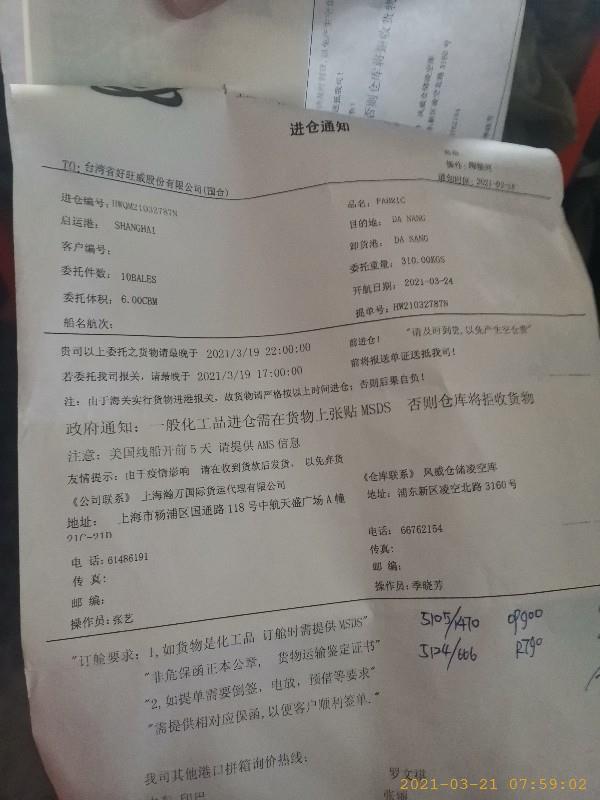 进仓通知
TO: 台湾省好旺威股份有限公司(国合)
通知时间: 2021-03-18
进仓编号: HWQM21032787N
品名: FABRIC
启运港: SHANGHAI
目的地: DA NANG
客户编号:
卸货港: DA NANG
委托件数: 10BALES
委托重量: 310.00KGS
委托体积: 6.00CBM
开航日期: 2021-03-24
船名航次:
提单号: HW21032787N
贵司以上委托之货物请最晚于 2021/3/19 22:00:00 前进仓! "请及时到货,以免产生空仓费"
若委托我司报关, 请最晚于 2021/3/19 17:00:00 前将报送单证送抵我司!
注: 由于海关实行货物进港报关, 故货物请严格按以上时间进仓; 否则后果自负!
政府通知: 一般化工品进仓需在货物上张贴 MSDS 否则仓库将拒收货物
注意: 美国线船开前 5 天 请提供 AMS 信息
友情提示: 由于疫情影响 请在收到货款后发货, 以免弃货
《公司联系》 上海瀚万国际货运代理有限公司
《仓库联系》 风威仓储凌空库
地址: 上海市杨浦区国通路 118 号中航天盛广场 A 幢
21C-21D
地址: 浦东新区凌空北路 3160 号
电 话: 61486191
电话: 66762154
传 真:
传真:
邮 编:
邮 编:
操作员: 张艺
操作员: 季晓芳
"订舱要求: 1, 如货物是化工品 订舱时需提供 MSDS"
"非危保函正本公章, 货物运输鉴定证书"
"2, 如提单需要倒签, 电放, 预借等要求"
"需提供相对应保函, 以便客户顺利签单."
5105/1470 0900
5124/666 R790
我司其他港口拼箱询价热线:
罗文琪
2021-03-21 07:59:02